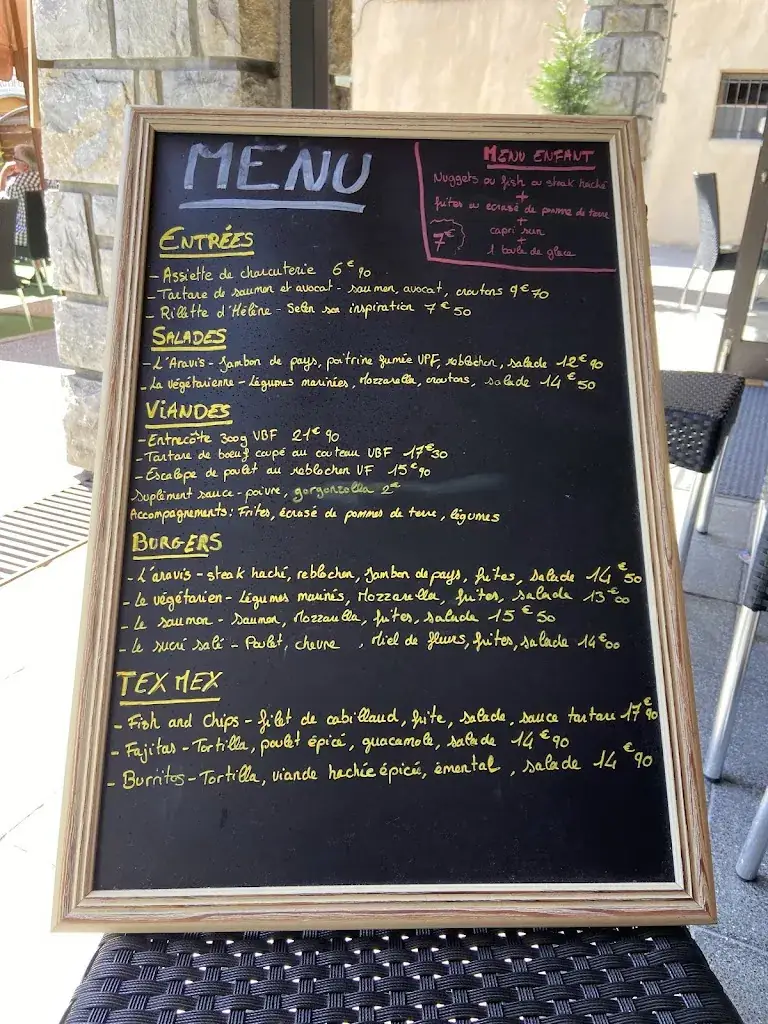 MENU
MENU ENFANT
Nuggets ou fish ou steak haché
+
frites ou écrasé de pomme de terre
+
capri sun
+
1 boule de glace
7€
ENTRÉES
- Assiette de charcuterie 6€90
- Tartare de saumon et avocat - saumon, avocat, croutons 9€70
- Rillette d'Hélène - Selon son inspiration 7€50
SALADES
- L'Aravis - Jambon de pays, poitrine fumée VPF, reblochon, salade 12€90
- La végétarienne - Légumes marinées, Mozzarella, croutons, salade 14€50
VIANDES
- Entrecôte 300g VBF 21€90
- Tartare de boeuf coupé au couteau VBF 17€30
- Escalope de poulet au reblochon VF 15€90
Suplément sauce - poivre, gorgonzolla 2€
Accompagnements: Frites, écrasé de pommes de terre, légumes
BURGERS
- L'aravis - steak haché, reblochon, Jambon de pays, frites, salade 14€50
- Le végétarien - Légumes marinés, Mozzarella, frites, salade 13€00
- Le saumon - saumon, Mozzarella, frites, salade 15€50
- Le sucré salé - Poulet, chevre , Miel de fleurs, frites, salade 14€00
TEX MEX
- Fish and Chips - filet de cabillaud, frite, salade, sauce tartare 17€90
- Fajitas - Tortilla, poulet épicé, guacamole, salade 14€90
- Burritos - Tortilla, viande hachée épicée, émental , salade 14€90